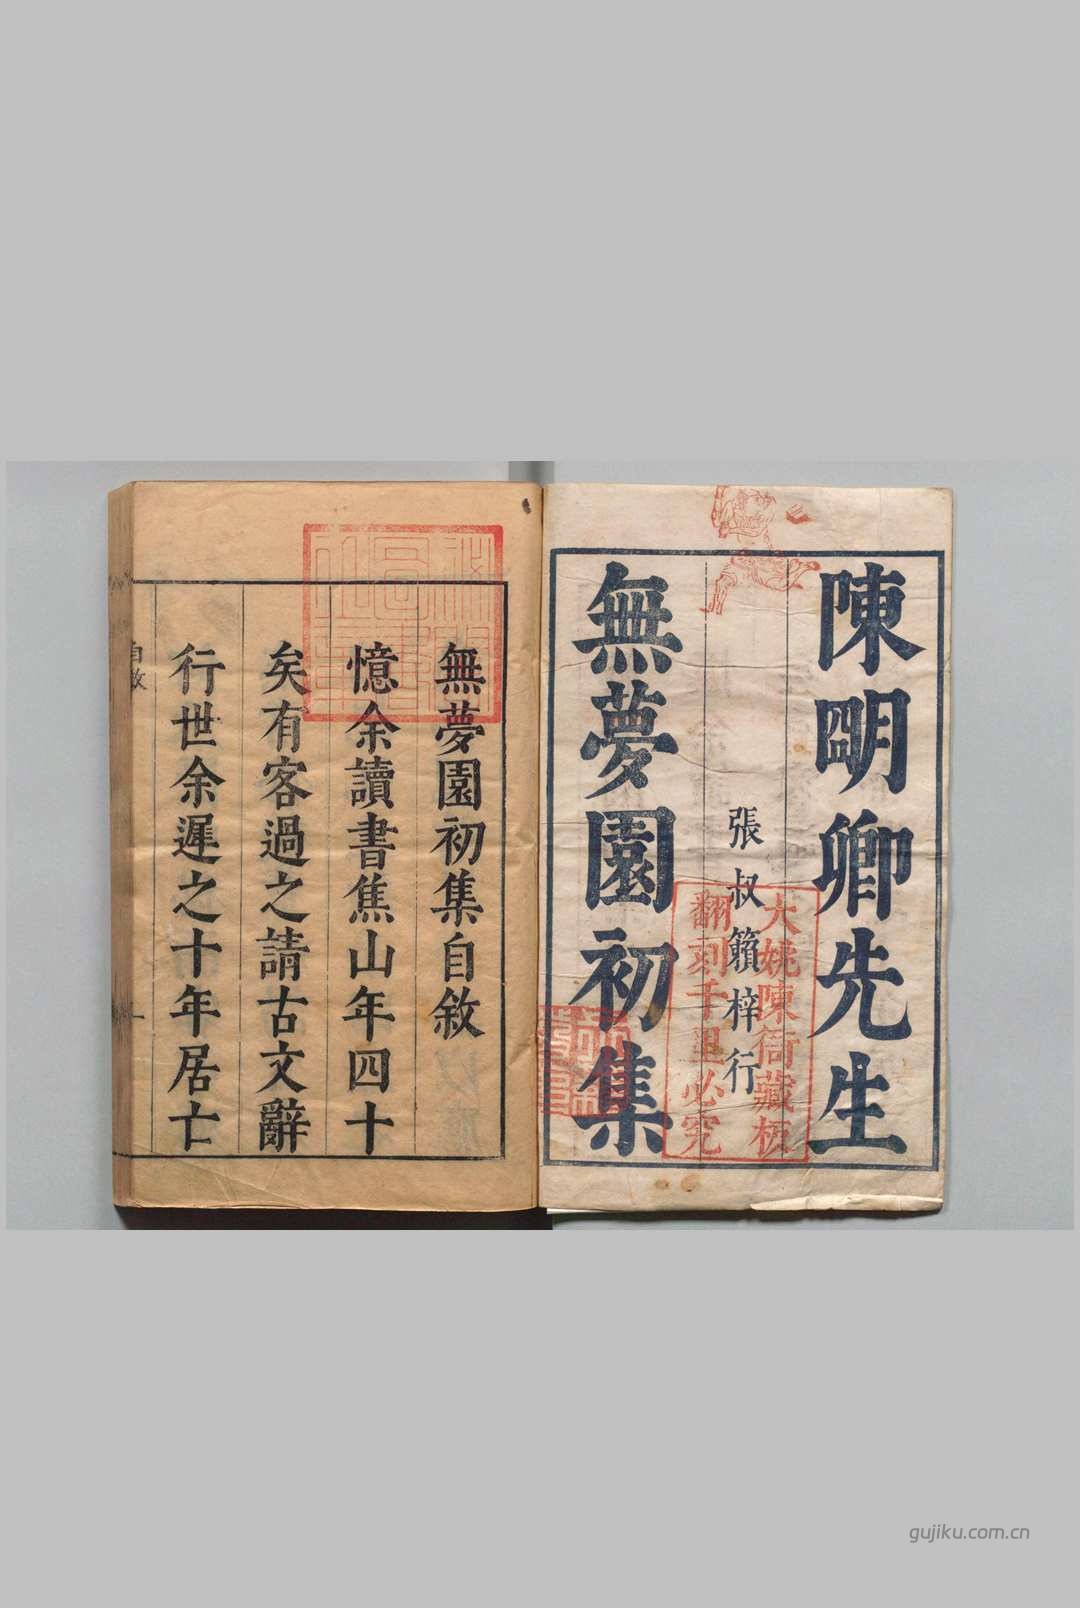 陳明卿先生
張叔籟梓行
無夢園初集
大姚陳衙藏板
翻刻千里必究
無夢園初集自敘
憶余讀書焦山年四十
矣有客過之請古文辭
行世余遲之十年居亡
自敘
一
gujiku.com.cn